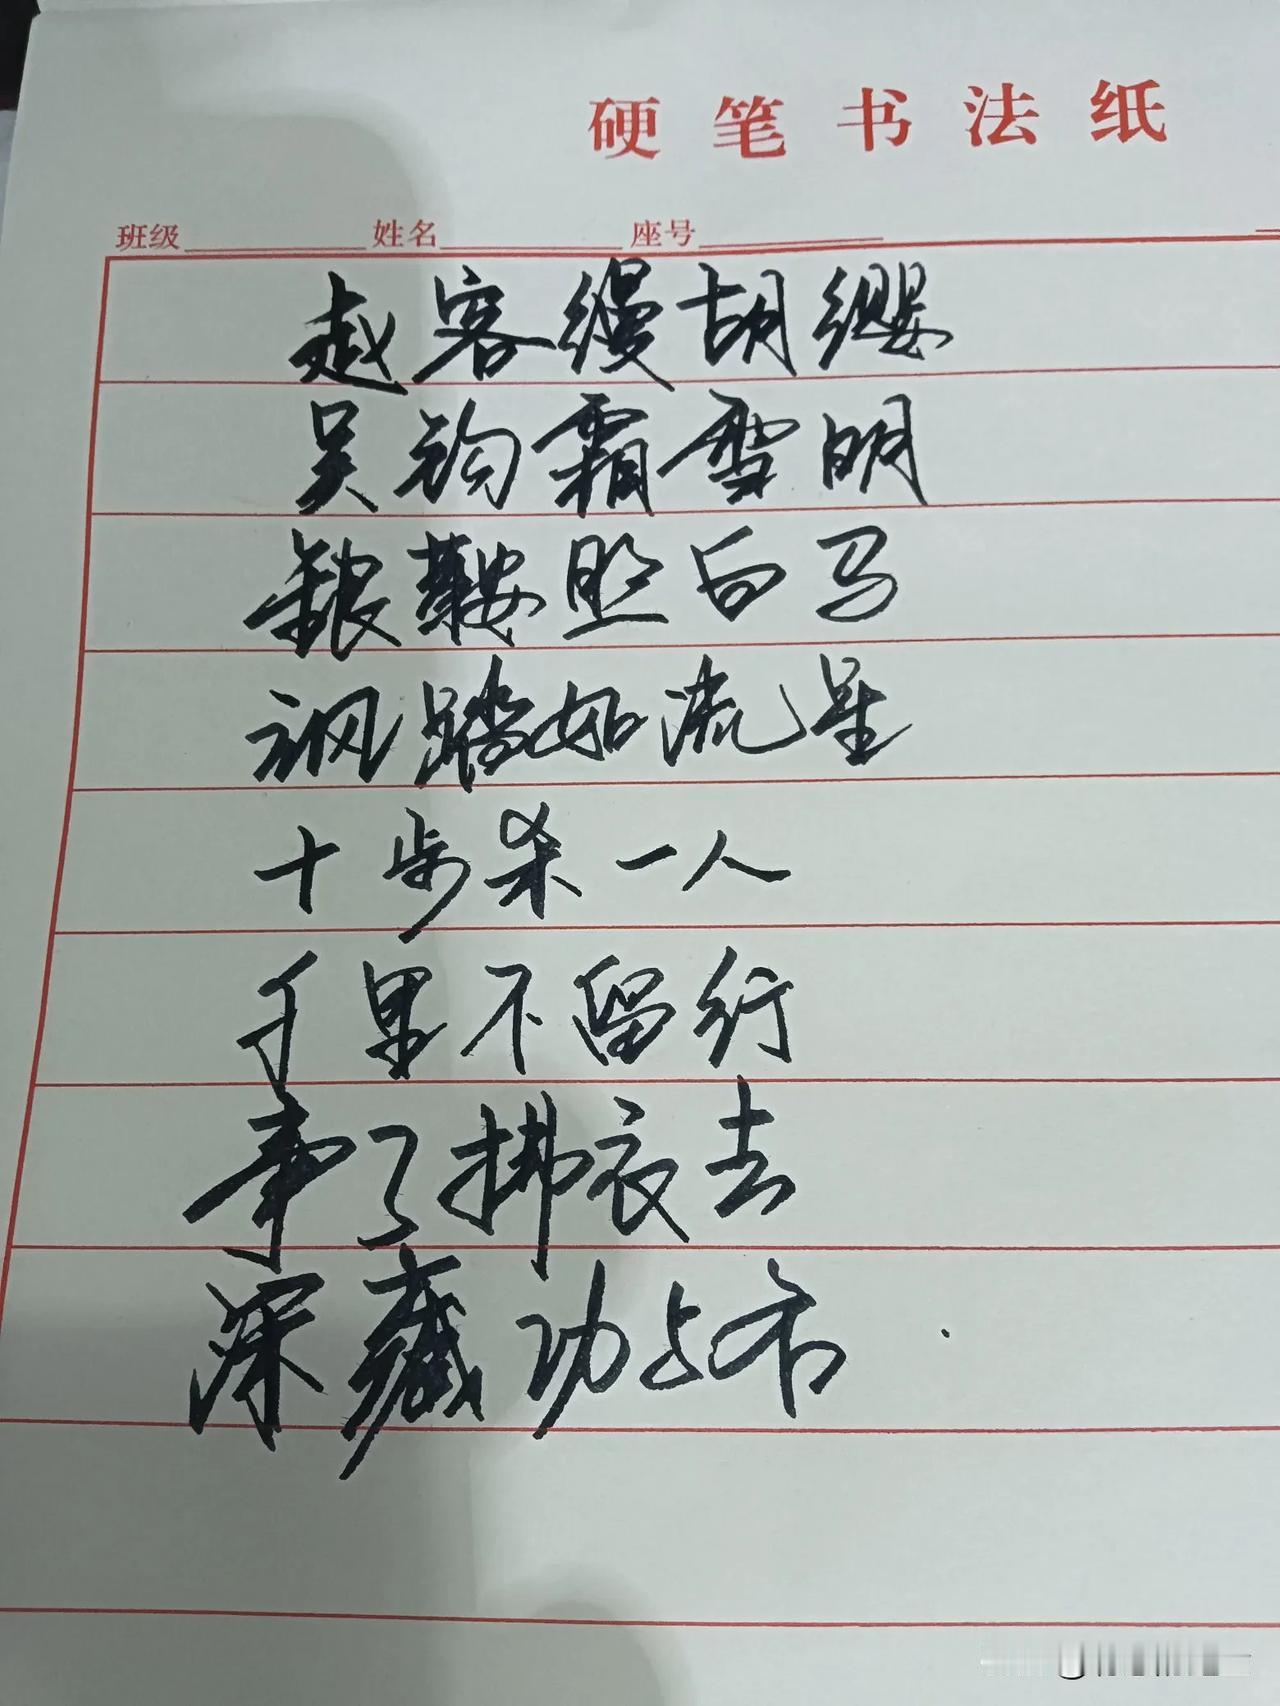 硬笔书法纸
班级 姓名 座号
赵客缦胡缨
吴钩霜雪明
银鞍照白马
飒踏如流星
十步杀一人
千里不留行
事了拂衣去
深藏功与名